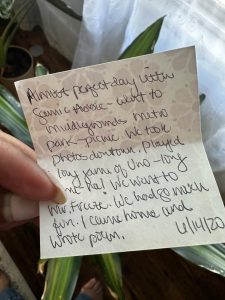 Almost perfect day with
Samie Annie - went to
middlegrounds metro
park - picnic. We took
photos downtown. Played
long game of Uno - long
one ha! We went to
Mr. Freeze. We had so much
fun. I came home and
wrote poem. 6/14/20